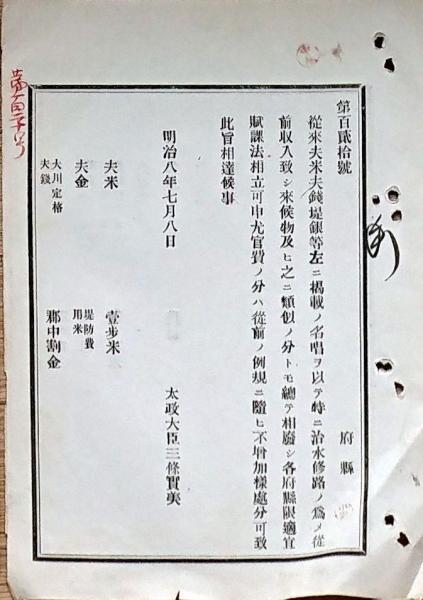 第百貳拾號
府縣
從來夫米夫錢堤銀等左ニ揭載ノ名唱ヲ以テ特ニ治水修路ノ爲メ從
前収入致シ來候物及ヒ之ニ類似ノ分トモ總テ相廢シ各府縣限適宜
賦課法相立可申尤官費ノ分ハ從前ノ例規ニ隨ヒ不增加樣處分可致
此旨相達候事
明治八年七月八日
太政大臣三條實美
夫米
壹步米
夫金
堤防費用米
大川定格夫錢
郷中割金
第百二十号